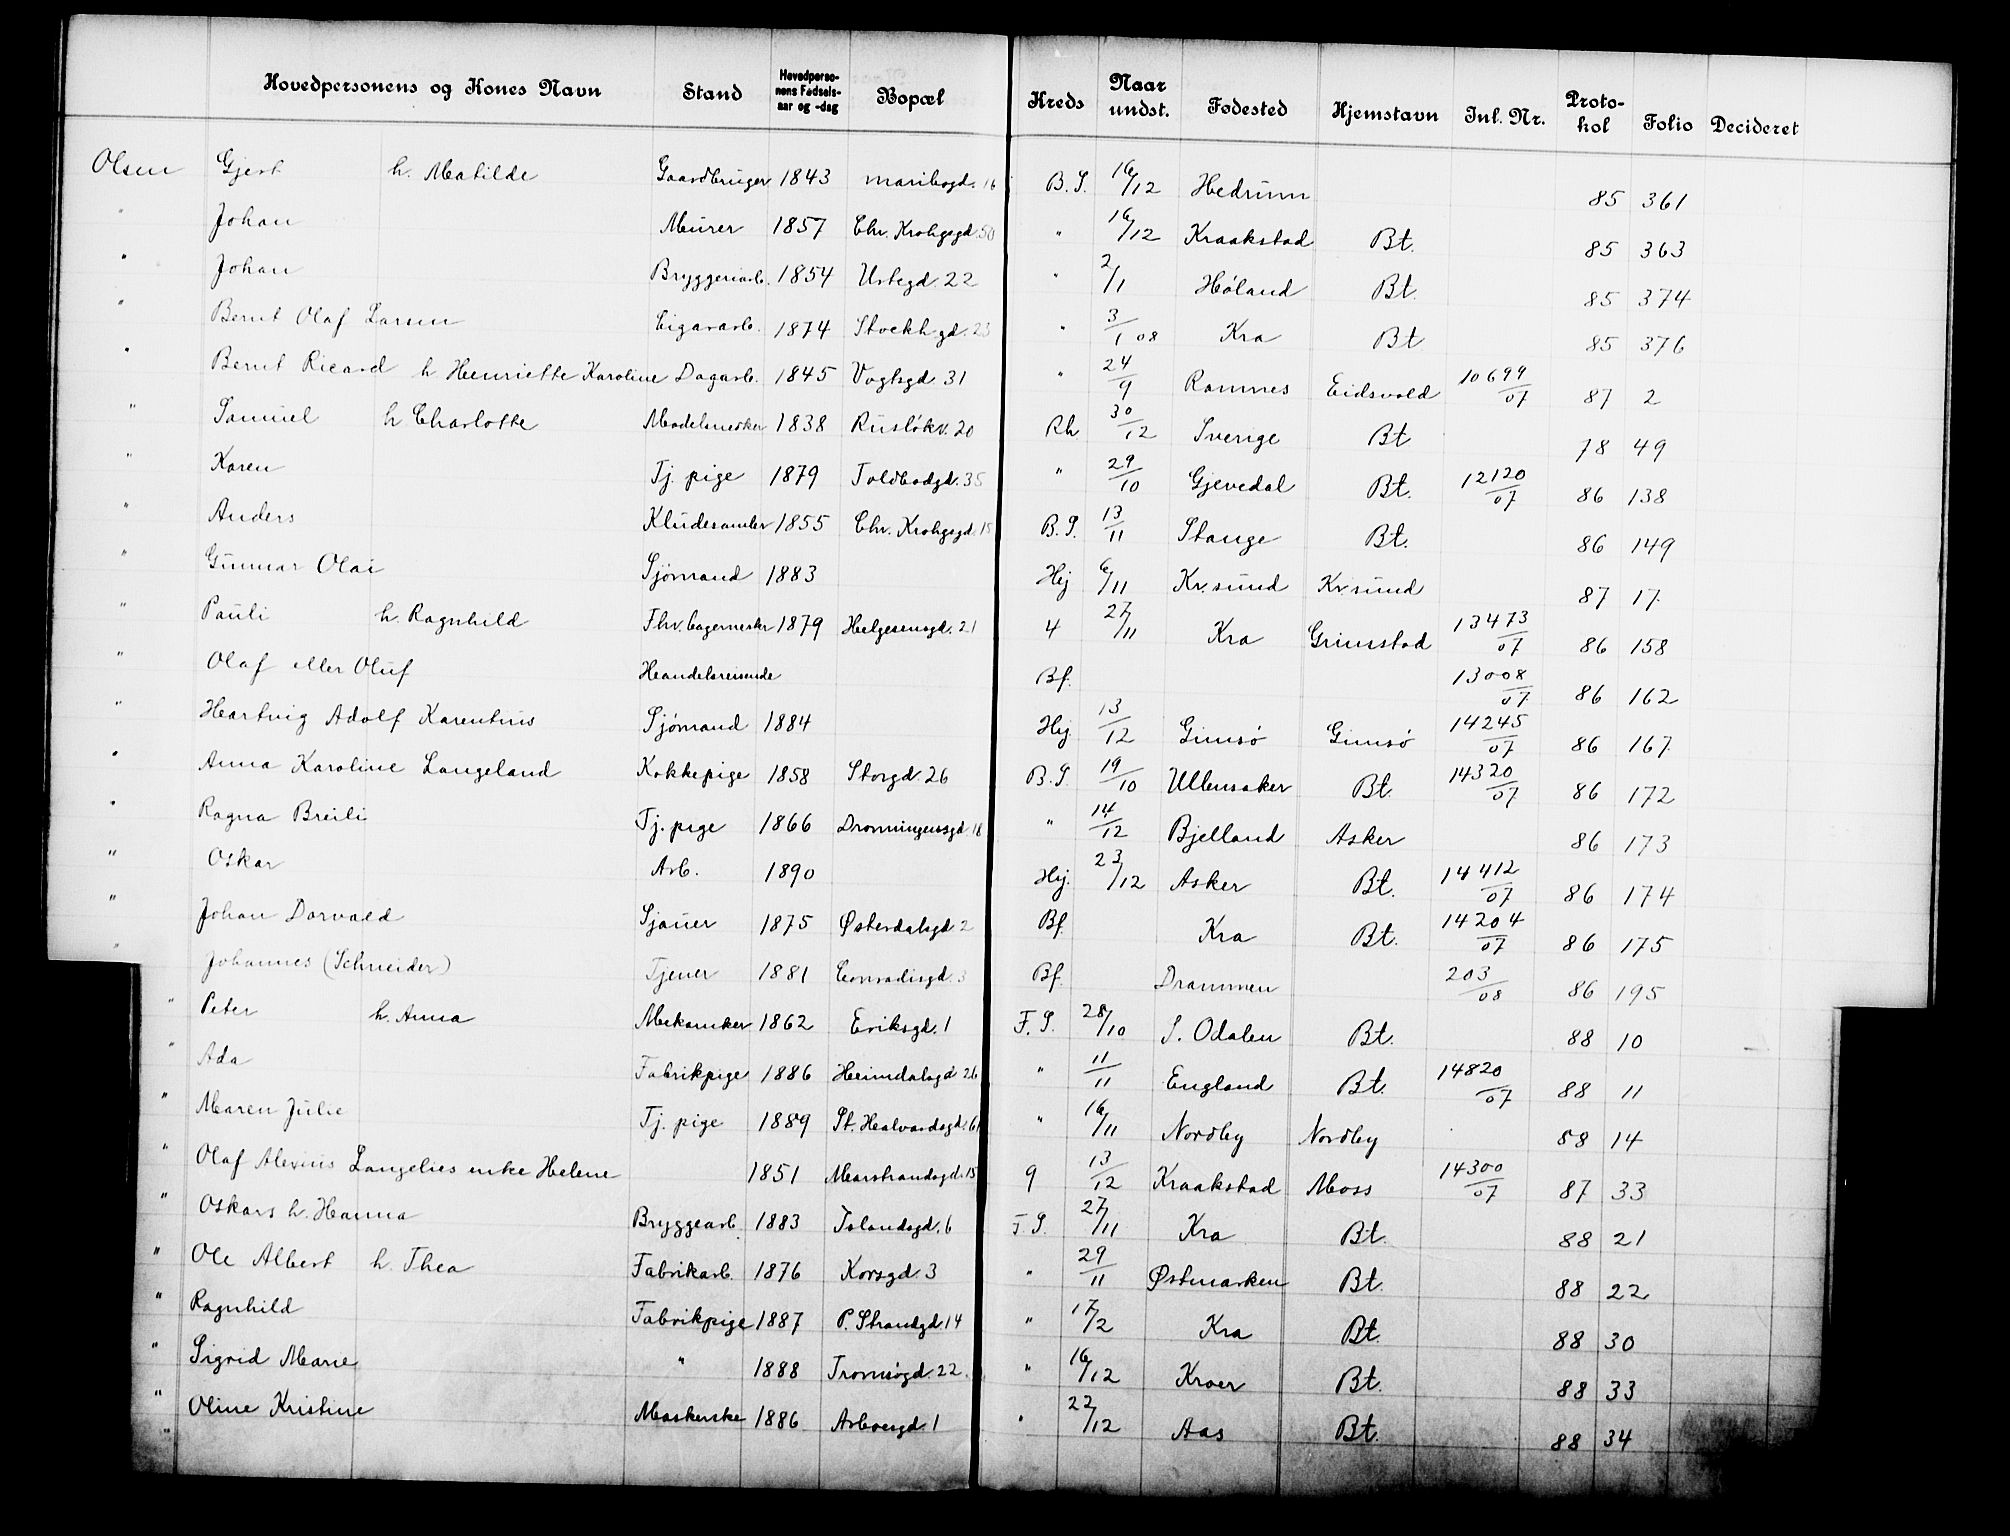 Hovedpersonens og Kones Navn Stand Hovedpersonens Fødselsaar og -dag Bopæl Kreds Naar undst. Fødested Hjemstavn Inl. Nr. Protokol Folio Decideret
Olsen Gjert h. Matilde Gaardbruger 1843 Maribogd. 16 B.S. 16/12 Hedrum 85 361
" Johan Murer 1857 Chr. Krohgsgd. 50 " 16/12 Kraakstad Bt. 85 363
" Johan Bryggeriarb. 1854 Ustegd. 22 " 2/1 Høland Bt. 85 374
" Bernt Olaf Larsen Cigararb. 1874 Stockh.gd. 23 " 3/1 08 Kra Bt 85 376
" Bernt Ricard h Henriette Karoline Dagarb. 1845 Vogtsgd. 31 " 24/9 Ramnes Eidsvold 10699/07 87 2
" Samuel h Charlotte Modelsnekker 1838 Rusløkv. 20 Rh 30/12 Sverige Bt 78 49
" Karen Tj. pige 1879 Toldbodgd. 35 " 29/10 Gjevedal Bt. 12120/07 86 138
" Anders Kludesamler 1855 Chr. Krohgsgd. 15 B.S. 13/11 Stange Bt. 86 149
" Gunnar Olai Sjømand 1883 Hj 6/11 Kr.sund Kr.sund 87 17.
" Pauli h. Ragnhild Fhv. bagermester 1879 Helgesensgd. 21 4 27/11 Kra Grimstad 13473/07 86 158
" Olaf eller Oluf Handelsreisende Bf. 13008/07 86 162
" Hartvig Adolf Karentius Sjømand 1884 Hj 13/12 Gimsø Gimsø 14245/07 86 167.
" Anna Karoline Langeland Kokkepige 1858 Storgd. 26 B.S. 19/10 Ullensaker Bt. 14320/07 86 172
" Ragna Breili Tj. pige 1866 Dronningensgd. 18 " 14/12 Bjelland Asker 86 173
" Oskar Arb. 1890 Hj. 23/12 Asker Bt. 14412/07 86 174
" Johan Dorvald Sjauer 1875 Østerdalsgd. 2 Bf. Kra Bt. 14204/07 86 175
" Johannes (Schneider) Tjener 1881 Conradisgd. 3 Bf. Drammen 203/08 86 195
" Peter h. Anna Mekaniker 1862 Eriksgd. 1 F.S. 28/10 S. Odalen Bt. 88 10
" Ada Fabrikpige 1886 Heimdalsgd 26 " 11/11 England Bt. 14820/07 88 11
" Maren Julie Tj. pige 1889 St. Halvardsgd. 61 " 16/11 Nordby Nordby 88 14
" Olaf Alexius Langelies enke Helene 1851 Marstrandsgd. 15 9 13/12 Kraakstad Moss 14300/07 87 33
" Oskars h. Hanna Bryggearb. 1883 Tolandsgd. 6 F.S. 27/11 Kra Bt. 88 21
" Ole Albert h. Thea Fabrikarb. 1876 Korsgd. 3 " 29/11 Østmarken Bt. 88 22
" Ragnhild Fabrikpige 1887 P. Strandgd. 14 " 17/2 Kra Bt. 88 30
" Sigrid Marie " 1888 Tromsøgd. 22. " 16/12 Kroer Bt. 88 33
" Oline Kristine 1886 Arboesgd. 1 " 22/12 Aas Bt. 88 34
"